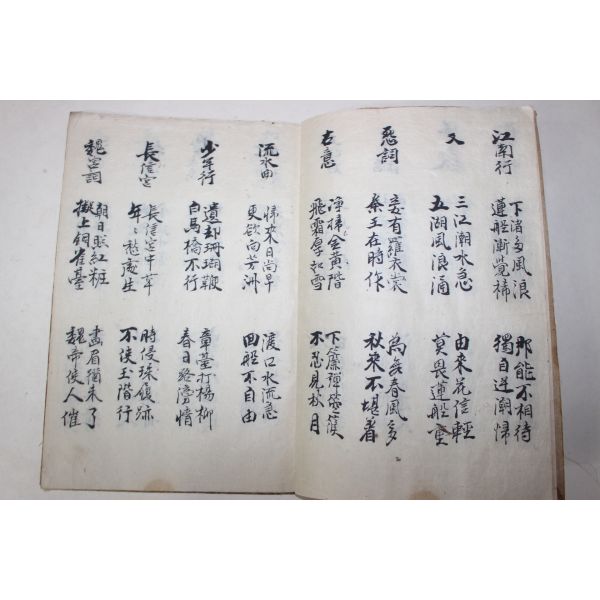 江南行
下渚多風浪
蓮船漸覺稀
那能不相待
獨自逆潮歸
又
三江潮水急
五湖風浪湧
由來花信輕
莫畏蓮船重
怨詞
妾有羅衣裳
秦王在時作
為舞春風多
秋來不堪着
古意
淨掃金黃階
飛霜厚如雪
下簾彈箜篌
不忍見秋月
流水曲
歸來日尚早
更欲向芳洲
渡口水流急
回船不自由
少年行
遺却珊瑚鞭
白馬橋不行
章臺打楊柳
春日路傍情
長信宮
長信宮中草
年〻愁處生
時侵珠履跡
不使玉階行
魏宮詞
朝日照紅粧
擬上銅雀臺
畫眉猶未了
魏帝使人催